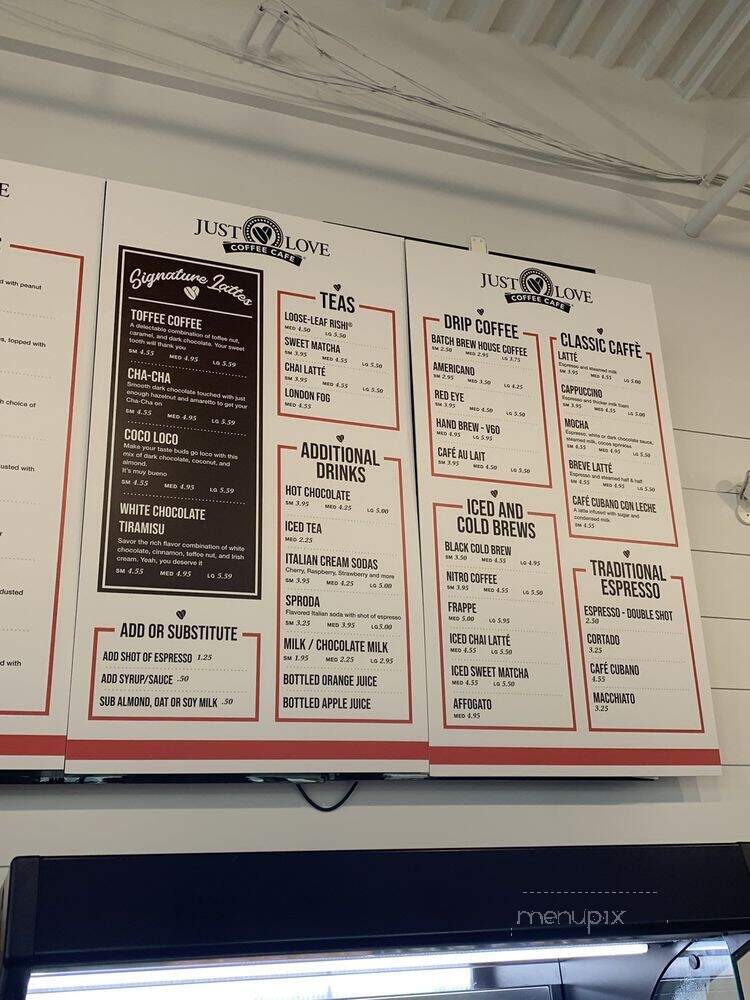 E
d with peanut
s, topped with
h choice of
usted with
dusted
d with
JUST LOVE
COFFEE CAFE
Signature Lattes
TOFFEE COFFEE
A delectable combination of toffee nut,
caramel, and dark chocolate. Your sweet
tooth will thank you
SM 4.55 MED 4.95 LG 5.59
CHA-CHA
Smooth dark chocolate touched with just
enough hazelnut and amaretto to get your
Cha-Cha on
SM 4.55 MED 4.95 LG 5.59
COCO LOCO
Make your taste buds go loco with this
mix of dark chocolate, coconut, and
almond.
It's muy bueno
SM 4.55 MED 4.95 LG 5.59
WHITE CHOCOLATE
TIRAMISU
Savor the rich flavor combination of white
chocolate, cinnamon, toffee nut, and Irish
cream. Yeah, you deserve it
SM 4.55 MED 4.95 LG 5.59
ADD OR SUBSTITUTE
ADD SHOT OF ESPRESSO 1.25
ADD SYRUP/SAUCE .50
SUB ALMOND, OAT OR SOY MILK .50
TEAS
LOOSE-LEAF RISHI®
MED 4.50 LG 5.50
SWEET MATCHA
SM 3.95 MED 4.55 LG 5.50
CHAI LATTÉ
SM 3.95 MED 4.55 LG 5.50
LONDON FOG
MED 4.55
ADDITIONAL
DRINKS
HOT CHOCOLATE
SM 3.95 MED 4.25 LG 5.00
ICED TEA
MED 2.25
ITALIAN CREAM SODAS
Cherry, Raspberry, Strawberry and more
SM 3.95 MED 4.25 LG 5.00
SPRODA
Flavored Italian soda with shot of espresso
SM 3.25 MED 3.95 LG 5.00
MILK / CHOCOLATE MILK
SM 1.95 MED 2.25 LG 2.95
BOTTLED ORANGE JUICE
BOTTLED APPLE JUICE
JUST LOVE
COFFEE CAFE
DRIP COFFEE
BATCH BREW HOUSE COFFEE
SM 2.50 MED 2.95 LG 3.75
AMERICANO
SM 2.95 MED 3.50 LG 4.25
RED EYE
SM 3.95 MED 4.50 LG 5.50
HAND BREW - V60
MED 4.95 LG 5.95
CAFÉ AU LAIT
SM 3.95 MED 4.50 LG 5.50
ICED AND
COLD BREWS
BLACK COLD BREW
SM 3.50 MED 4.55 LG 4.95
NITRO COFFEE
SM 3.95 MED 4.55 LG 5.50
FRAPPE
MED 5.00 LG 5.95
ICED CHAI LATTÉ
MED 4.55 LG 5.50
ICED SWEET MATCHA
MED 4.55 LG 5.50
AFFOGATO
MED 4.95
CLASSIC CAFFÈ
LATTÉ
Espresso and steamed milk
SM 3.95 MED 4.55 LG 5.00
CAPPUCCINO
Espresso and thicker milk foam
SM 3.95 MED 4.55 LG 5.00
MOCHA
Espresso, white or dark chocolate sauce,
steamed milk, cocoa sprinkles
SM 4.55 MED 4.95 LG 5.50
BREVE LATTÉ
Espresso and steamed half & half
SM 4.55 MED 4.95 LG 5.50
CAFÉ CUBANO CON LECHE
A latte infused with sugar and
condensed milk
SM 4.55
TRADITIONAL
ESPRESSO
ESPRESSO - DOUBLE SHOT
2.50
CORTADO
3.25
CAFÉ CUBANO
4.55
MACCHIATO
3.25
menupix